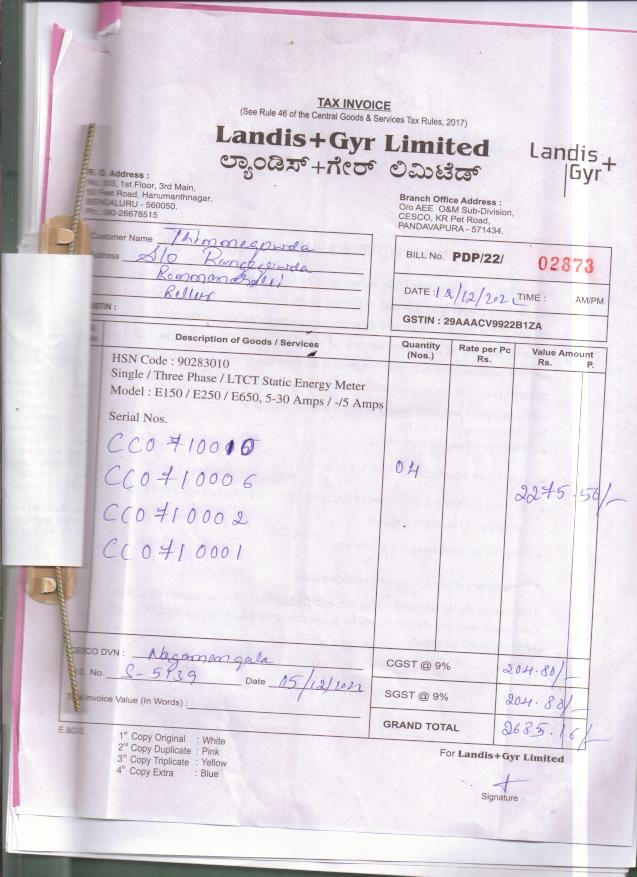 TAX INVOICE
(See Rule 46 of the Central Goods & Services Tax Rules, 2017)
Landis+Gyr Limited
ಲ್ಯಾಂಡಿಸ್+ಗೇರ್ ಲಿಮಿಟೆಡ್
Landis+
Gyr
R. O. Address :
No. 503, 1st Floor, 3rd Main,
Feet Road, Hanumanthnagar,
BENGALURU - 560050.
Ph. 080-26678515
Branch Office Address :
O/o AEE O&M Sub-Division,
CESCO, KR Pet Road,
PANDAVAPURA - 571434.
Customer Name Thimmegowda
Address S/o
Bellur
BILL No. PDP/22/ 02873
DATE : 12/2022 TIME : AM/PM
GSTIN : 29AAACV9922B1ZA
Description of Goods / Services
Quantity (Nos.)
Rate per Pc Rs.
Value Amount Rs. P.
HSN Code : 90283010
Single / Three Phase / LTCT Static Energy Meter
Model : E150 / E250 / E650, 5-30 Amps / -/5 Amps
Serial Nos.
CC0710006
CC0710002
CC0710001
04
2275.56/-
DVN : Nagamangala
No. S-5939 Date 05/12/2022
Invoice Value (In Words) :
CGST @ 9% 204.80/-
SGST @ 9% 204.80/-
GRAND TOTAL 2685.16/-
E.&O.E.
1st Copy Original : White
2nd Copy Duplicate : Pink
3rd Copy Triplicate : Yellow
4th Copy Extra : Blue
For Landis+Gyr Limited
Signature